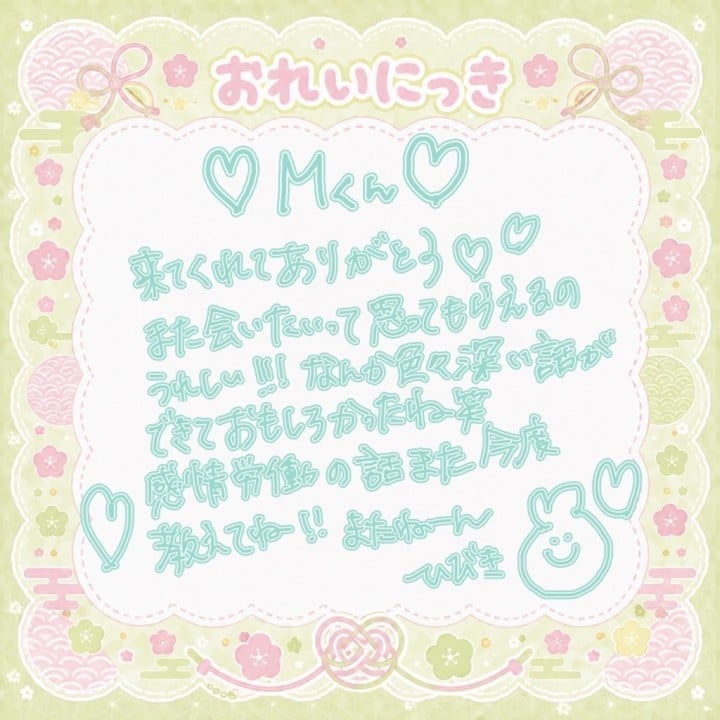 おれいにっき
♡ Mくん ♡
来てくれてありがとう♡♡
また会いたいって思ってもらえるの
うれしい!!! なんか色々深い話が
できておもしろかったね笑
感情労働の話また今度
教えてねー!! またねーん
ひびき